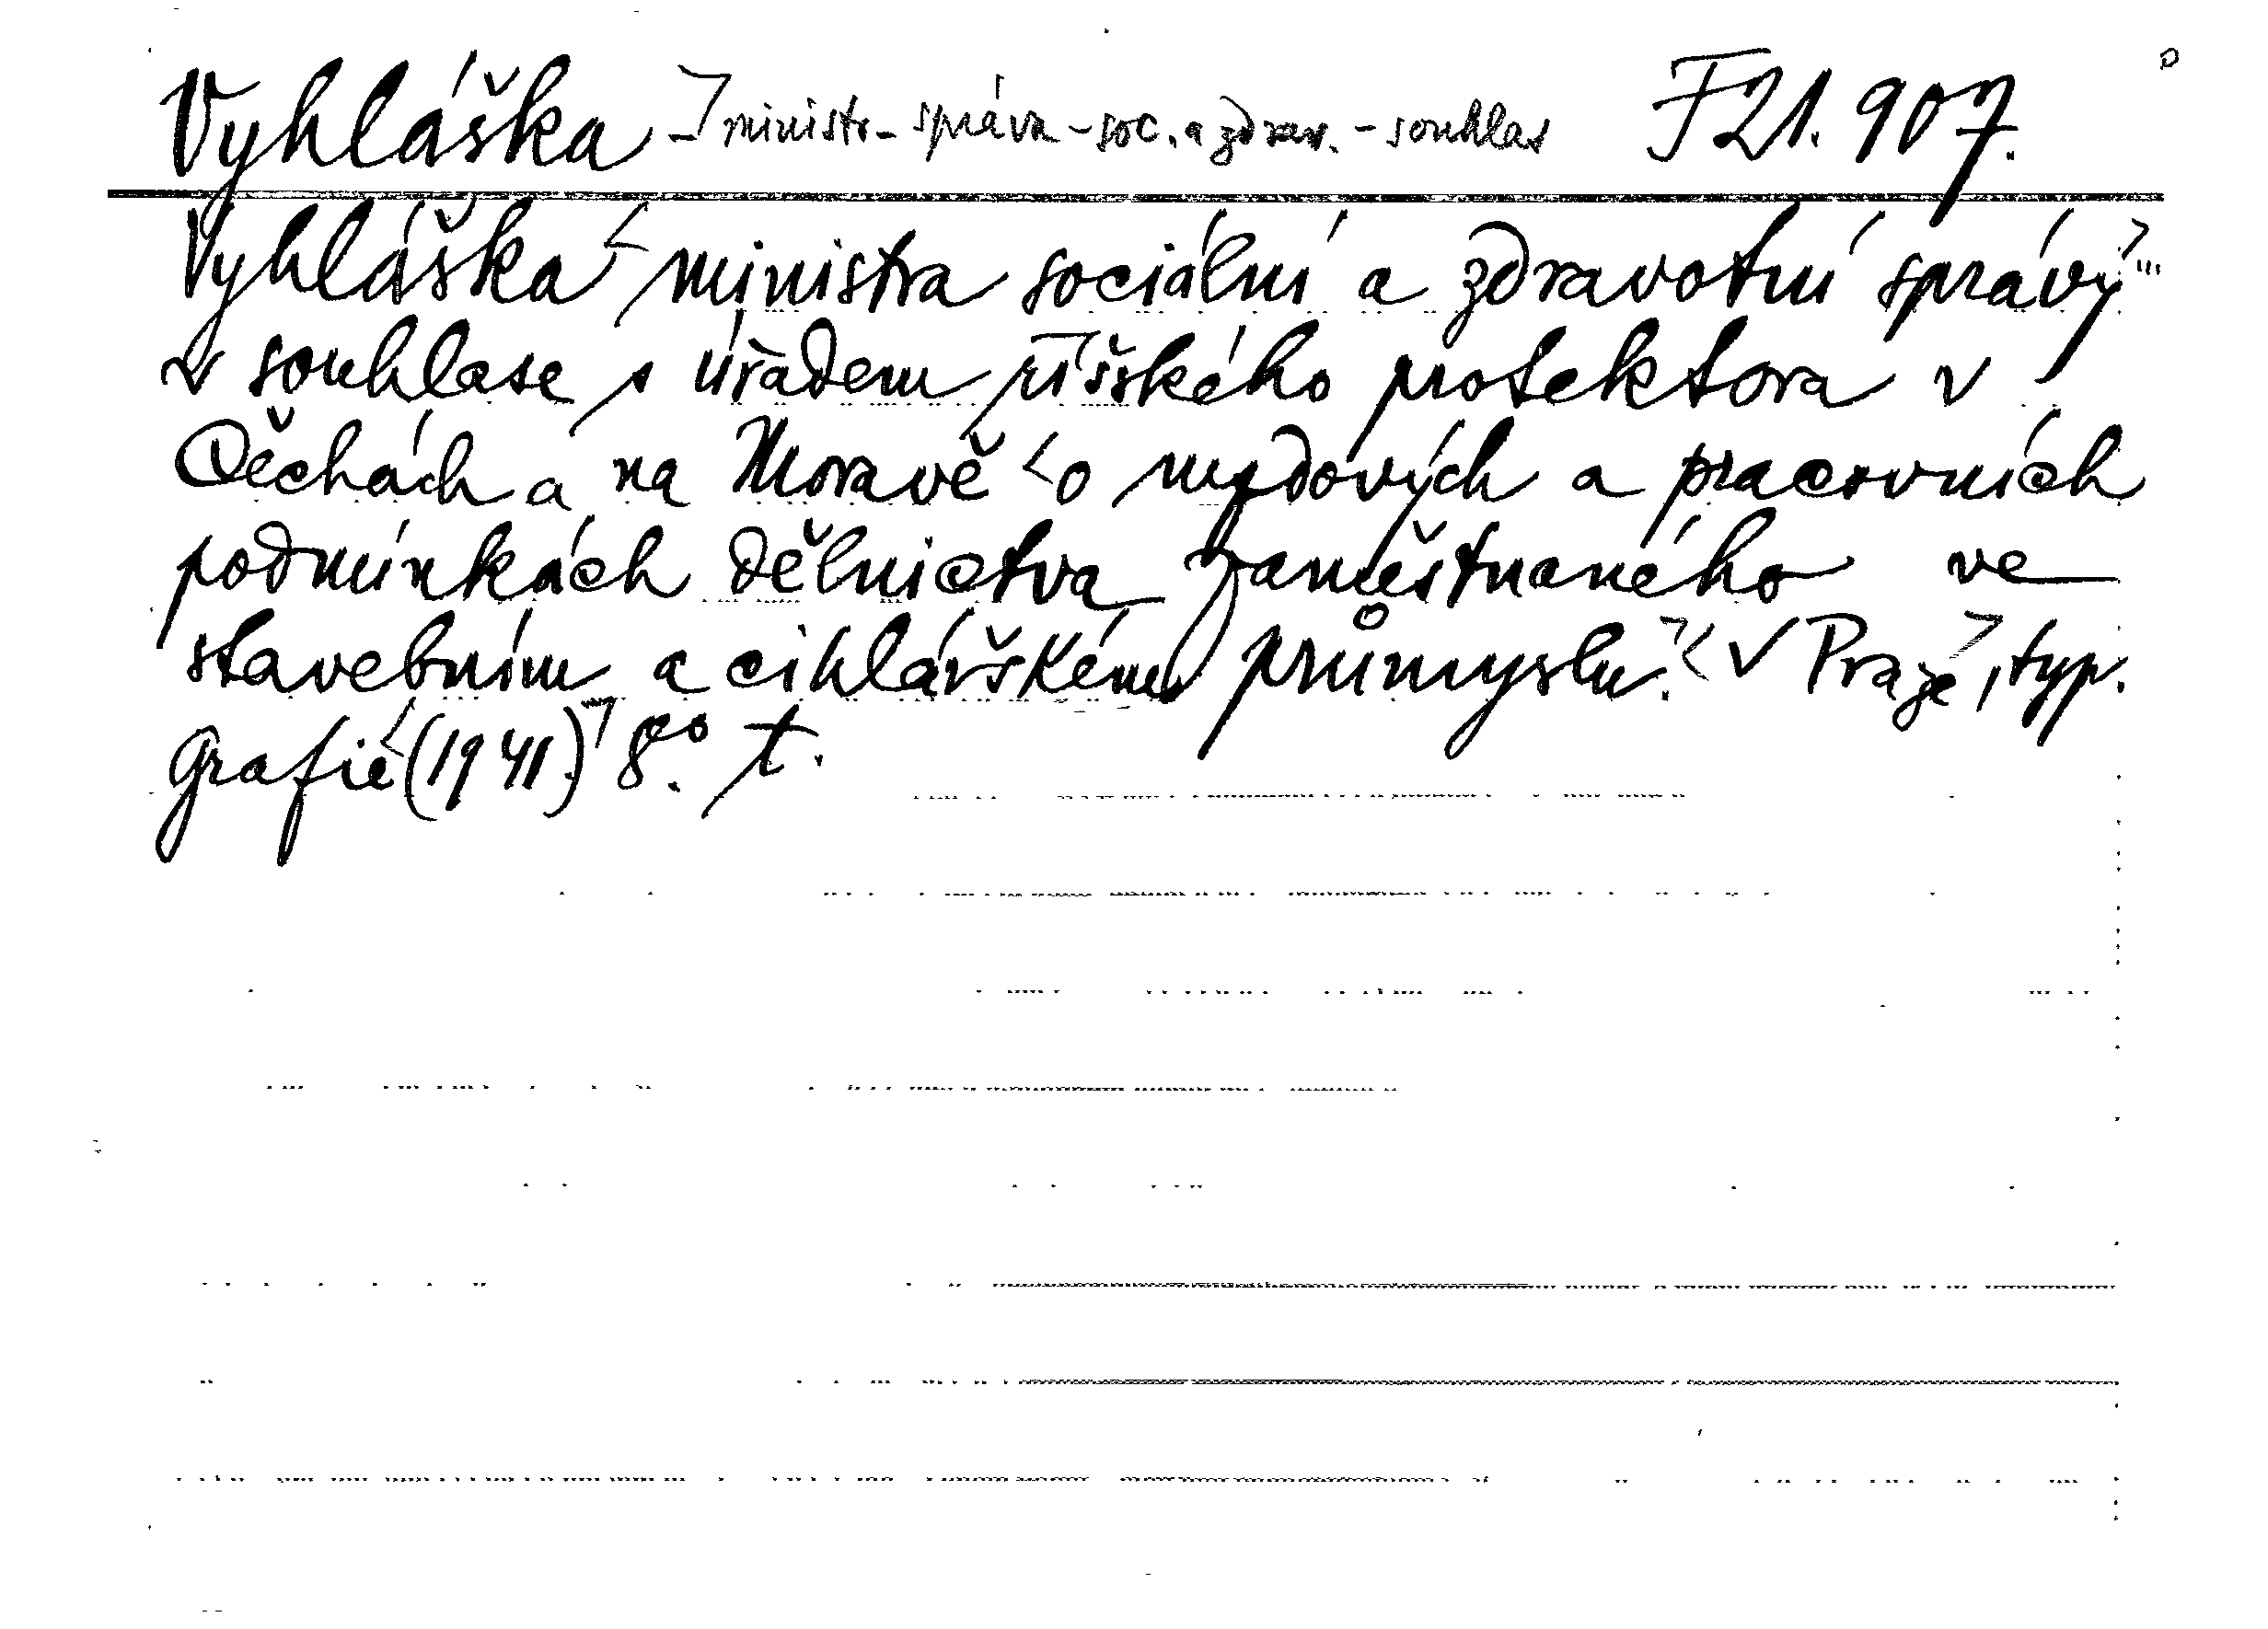 Vyhláška - ministr - správa - soc. a zdrav. - souhlas F 21.907.
Vyhláška ministra sociální a zdravotní správy
v souhlase s úřadem říšského protektora v
Čechách a na Moravě o mzdových a pracovních
podmínkách dělnictva zaměstnaného ve
stavebním a cihlářském průmyslu. V Praze, typ.
Grafie (1941) 8°. t.